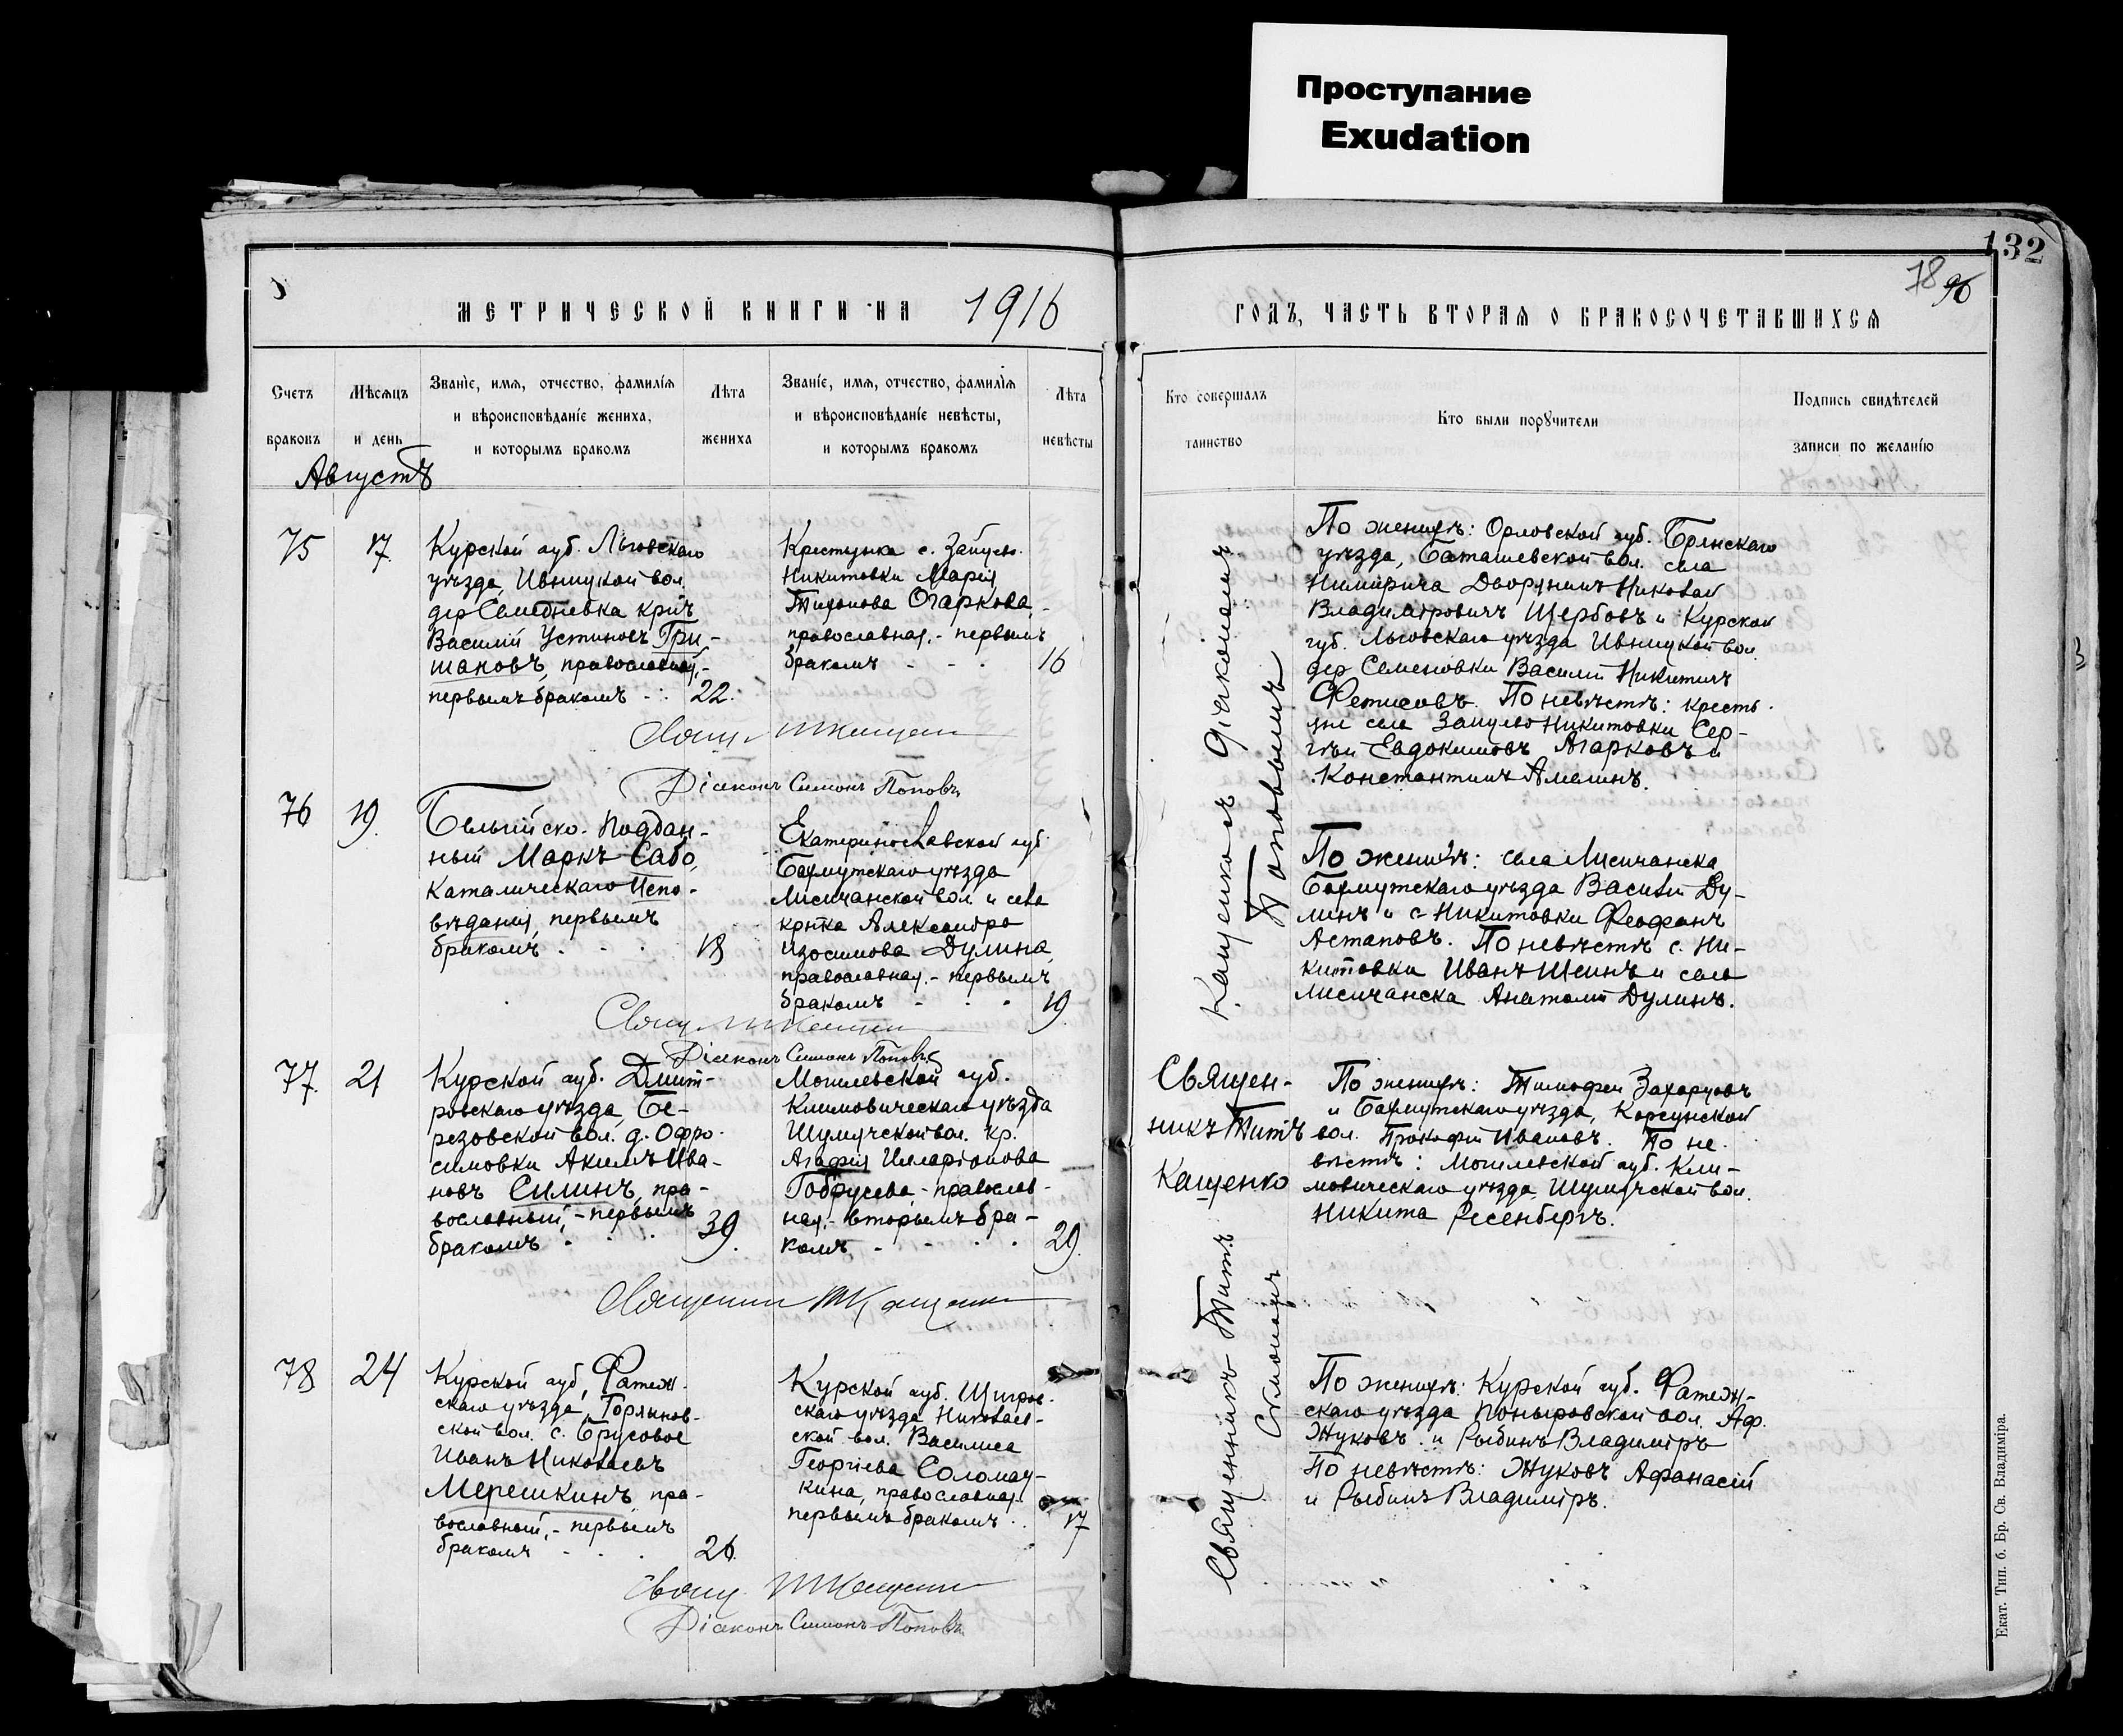 Проступание
Exudation
132
78 96
МЕТРИЧЕСКОЙ КНИГИ НА 1916
ГОДЪ, ЧАСТЬ ВТОРАЯ О БРАКОСОЧЕТАВШИХСЯ
Счетъ
браковъ
Мѣсяцъ
и день
Званіе, имя, отчество, фамилія
и вѣроисповѣданіе жениха,
и которымъ бракомъ
Лѣта
жениха
Званіе, имя, отчество, фамилія
и вѣроисповѣданіе невѣсты,
и которымъ бракомъ
Лѣта
невѣсты
Кто совершалъ
таинство
Кто были поручители
Подпись свидѣтелей
записи по желанію
Августъ
75
17.
Курской губ. Льговскаго
уѣзда, Ивницкой вол.
дер Семеновка
Василій Устиновъ Гри-
шаковъ, православный,-
первымъ бракомъ - : 22.
Крестьянка с. Зайцево-
Никитовки Марія
Тихонова Огаркова,-
православная, - первымъ
бракомъ - - . 16
Свящ. ТКащенко
Діаконъ Симонъ Поповъ
По женихѣ: Орловской губ. Брянскаго
уѣзда, Баташевской вол. села
Дворянинъ Николай
Владиміровичъ Щербовъ и Курской
губ. Льговскаго уѣзда Ивницкой вол.
дер Семеновки Василій Никитинъ
Фетисовъ. По невѣстѣ: кресть-
яне села Зайцево Никитовки Сер-
гѣй Евдокимовъ Агарковъ и
Константинъ Амелинъ.
76
19.
Бельгійско-Подан-
ный Маркъ Сабо,
Каталическаго Испо-
вѣданія, первымъ
бракомъ . - . 18
Екатеринославской губ
Бахмутскаго уѣзда
Лисичанской вол. и села
крѣка Александра
Изосимова Дулина,
православная. - первымъ
бракомъ - . . 19.
Свящ. ТКащенко
Діаконъ Симонъ Поповъ
По женихѣ: села Лисичанска
Бахмутскаго уѣзда Василій Ду-
линъ и с. Никитовки Феофанъ
Астаповъ. По невѣстѣ с. Ни-
китовки Иванъ Шеинъ и села
Лисичанска Анатолій Дулинъ.
77.
21
Курской губ. Дмит-
ровскаго уѣзда, Бе-
резовской вол. д. Офро-
симовки Акимъ Ива-
новъ Силинъ, пра-
вославный, - первымъ
бракомъ - . . 39.
Могилевской губ.
Климовическаго уѣзда
Шумячской вол. кр.
Агафія Илларіонова
Гобрусева, - православ-
ная, - вторымъ бра-
комъ - - . . 29.
Священникъ ТКащенко
Священ-
никъ Титъ
Кащенко
По женихѣ: Тимофей Захарцовъ
и Бахмутскаго уѣзда, Корсунской
вол. Прокофій Ивановъ. По не-
вѣстѣ: Могилевской губ. Кли-
мовическаго уѣзда, Шумячской вол.
Никита Ресенбергъ.
78
24
Курской губ, Фатеж-
скаго уѣзда, Горянов-
ской вол. с. Брусовое
Иванъ Николаевъ
Мерешкинъ, пра-
вославный, - первымъ
бракомъ - . . 26.
Курской губ. Щигров-
скаго уѣзда Николаев-
ской вол. Василиса
Георгіева Соломат-
кина, православная
первымъ бракомъ . . 17
Свящ. ТКащенко
Діаконъ Симонъ Поповъ
Священникъ Титъ
Кащенко съ діакономъ
Симономъ
Поповымъ
По женихѣ: Курской губ. Фатеж-
скаго уѣзда Поныровской вол. Аф.
Жуковъ и Рыбинъ Владиміръ
По невѣстѣ: Жуковъ Афанасій
и Рыбинъ Владиміръ.
Екат. Тип. б. Бр. Св. Владиміра.